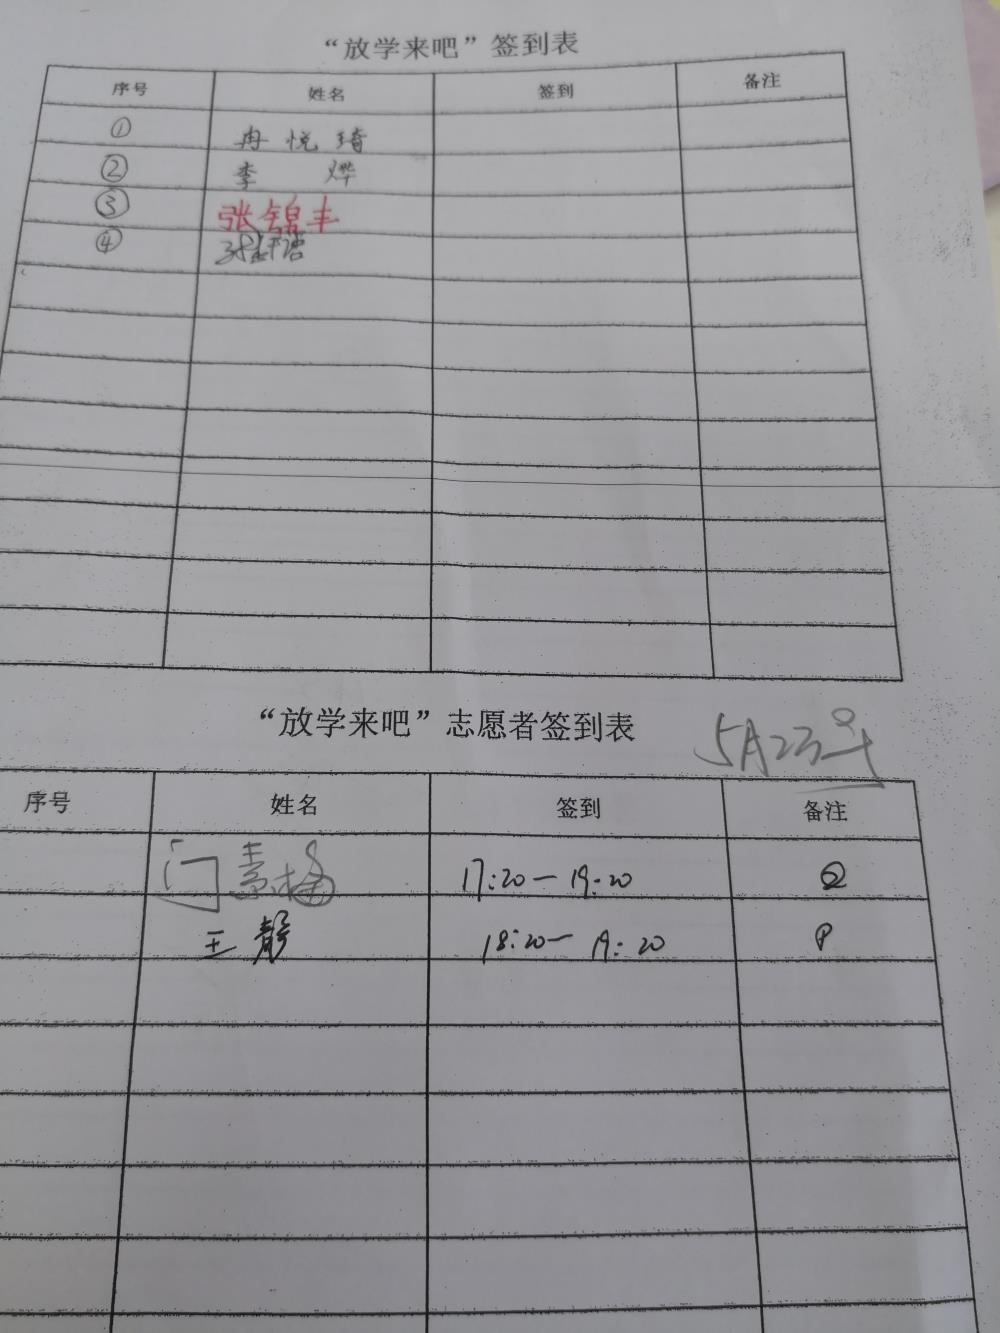 “放学来吧”签到表
序号 姓名 签到 备注
① 冉悦琦
② 李烨
③ 张锦丰
④
“放学来吧”志愿者签到表
5月23号
序号 姓名 签到 备注
门素梅 17:20—19:20
王静 18:20—19:20